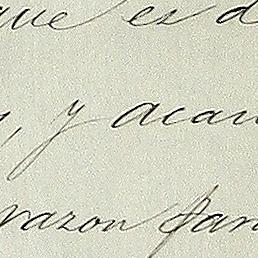 que es d
, y acau
razon fan